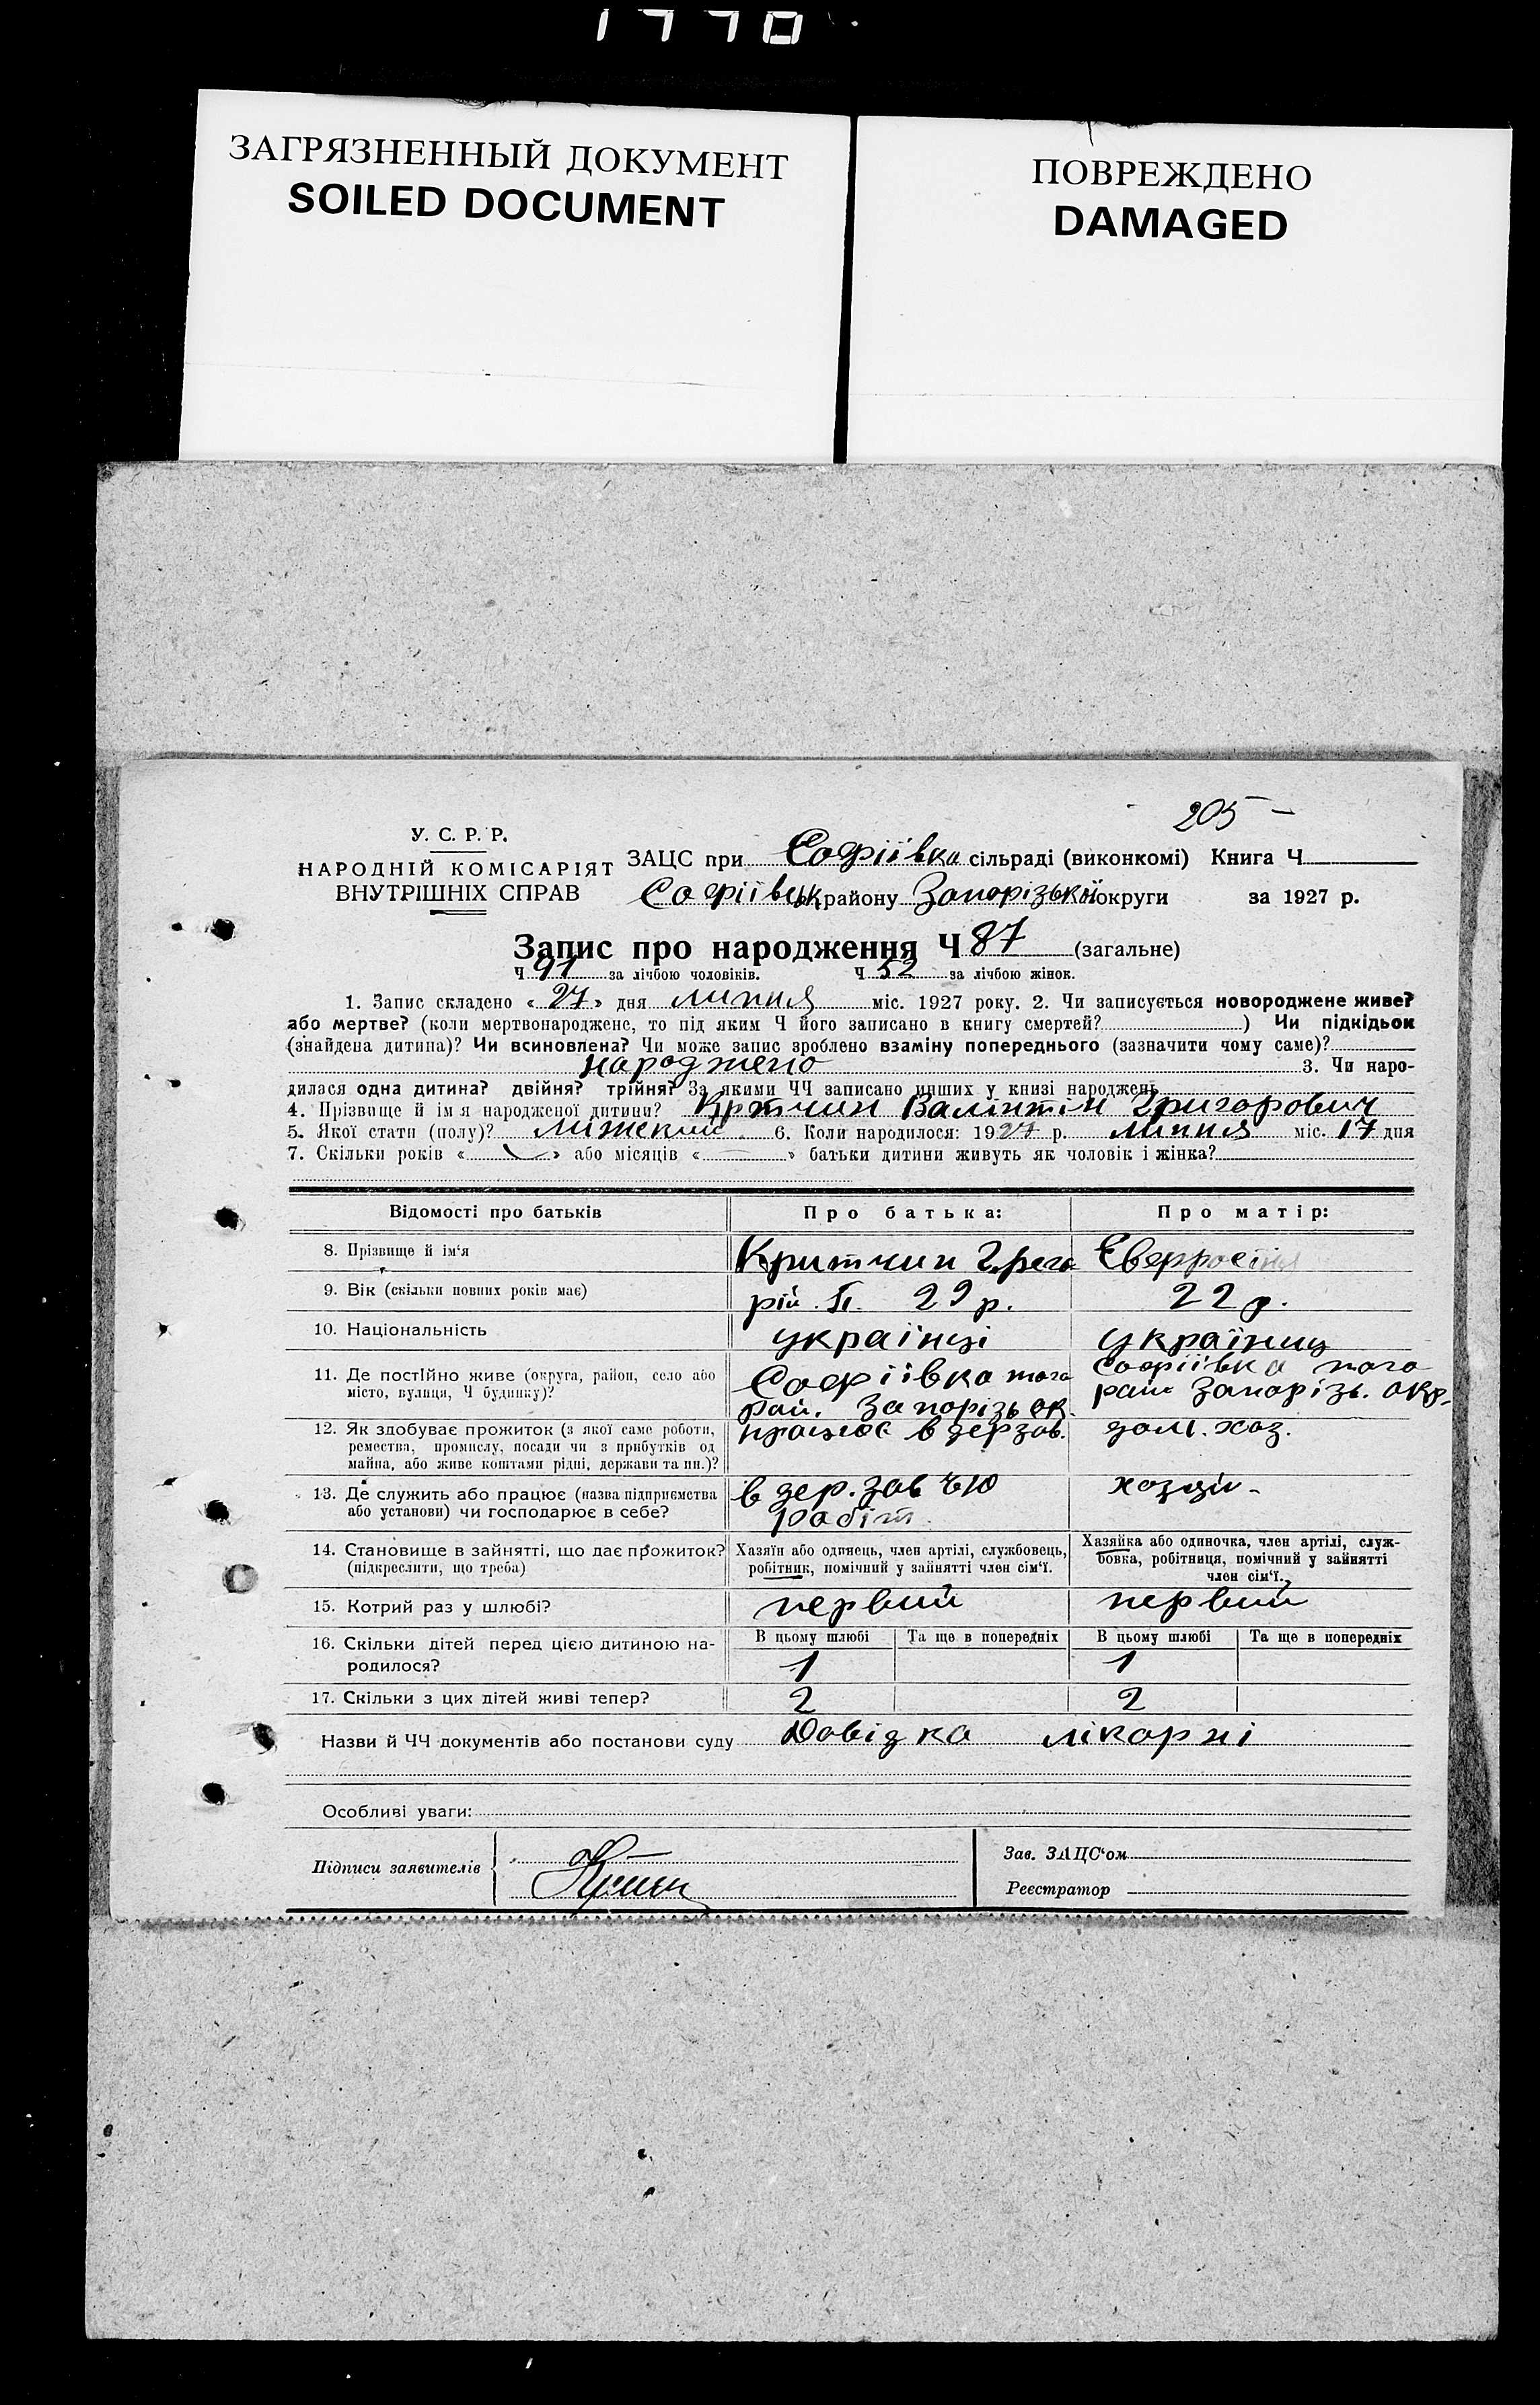 1770
ЗАГРЯЗНЕННЫЙ ДОКУМЕНТ
SOILED DOCUMENT
ПОВРЕЖДЕНО
DAMAGED
205
У. С. Р. Р.
НАРОДНІЙ КОМІСАРІЯТ
ВНУТРІШНІХ СПРАВ
ЗАЦС при Софіївка сільраді (виконкомі) Книга Ч
Софіївськ району Запорізької округи за 1927 р.
Запис про народження Ч 87 (загальне)
Ч 91 за лічбою чоловіків. Ч 52 за лічбою жінок.
1. Запис складено « 27 » дня липня міс. 1927 року. 2. Чи записується новороджене живе?
або мертве? (коли мертвонароджене, то під яким Ч його записано в книгу смертей? ) Чи підкідьок
(знайдена дитина)? Чи всиновлена? Чи може запис зроблено взаміну попереднього (зазначити чому саме)?
народжено 3. Чи наро-
дилася одна дитина? двійня? трійня? За якими ЧЧ записано инших у книзі народжень
4. Прізвище й ім'я народженої дитини? Критчин Валінтін Григорович
5. Якої стати (полу)? 6. Коли народилося: 1927 р. липня міс. 17 дня
7. Скільки років « » або місяців « — » батьки дитини живуть як чоловік і жінка?
Відомості про батьків Про батька: Про матір:
8. Прізвище й ім'я Критчин Григо
9. Вік (скільки повних років має) рій. П. 29 р. 22 р.
10. Національність українці українц
11. Де постійно живе (округа, район, село або
місто, вулиця, Ч будинку)?
Софіївка того
рай. Запорізь ок.
Софіївка того
рай Запорізь. окр.
12. Як здобуває прожиток (з якої саме роботи,
ремества, промислу, посади чи з прибутків од
майна, або живе коштами рідні, держави та ин.)?
працює в держав. дом. хоз.
13. Де служить або працює (назва підприємства
або установи) чи господарює в себе?
в дер. зав
робіт.
14. Становище в зайнятті, що дає прожиток?
(підкреслити, що треба)
Хазяїн або одинець, член артілі, службовець,
робітник, помічний у зайнятті член сім'ї.
Хазяйка або одиночка, член артілі, служ-
бовка, робітниця, помічний у зайнятті
член сім'ї.
15. Котрий раз у шлюбі? первий первий
16. Скільки дітей перед цією дитиною на-
родилося?
В цьому шлюбі Та ще в попередніх В цьому шлюбі Та ще в попередніх
1 1
17. Скільки з цих дітей живі тепер? 2 2
Назви й ЧЧ документів або постанови суду Довідка лікарні
Особливі уваги:
Підписи заявителів
Зав. ЗАЦС'ом
Реєстратор